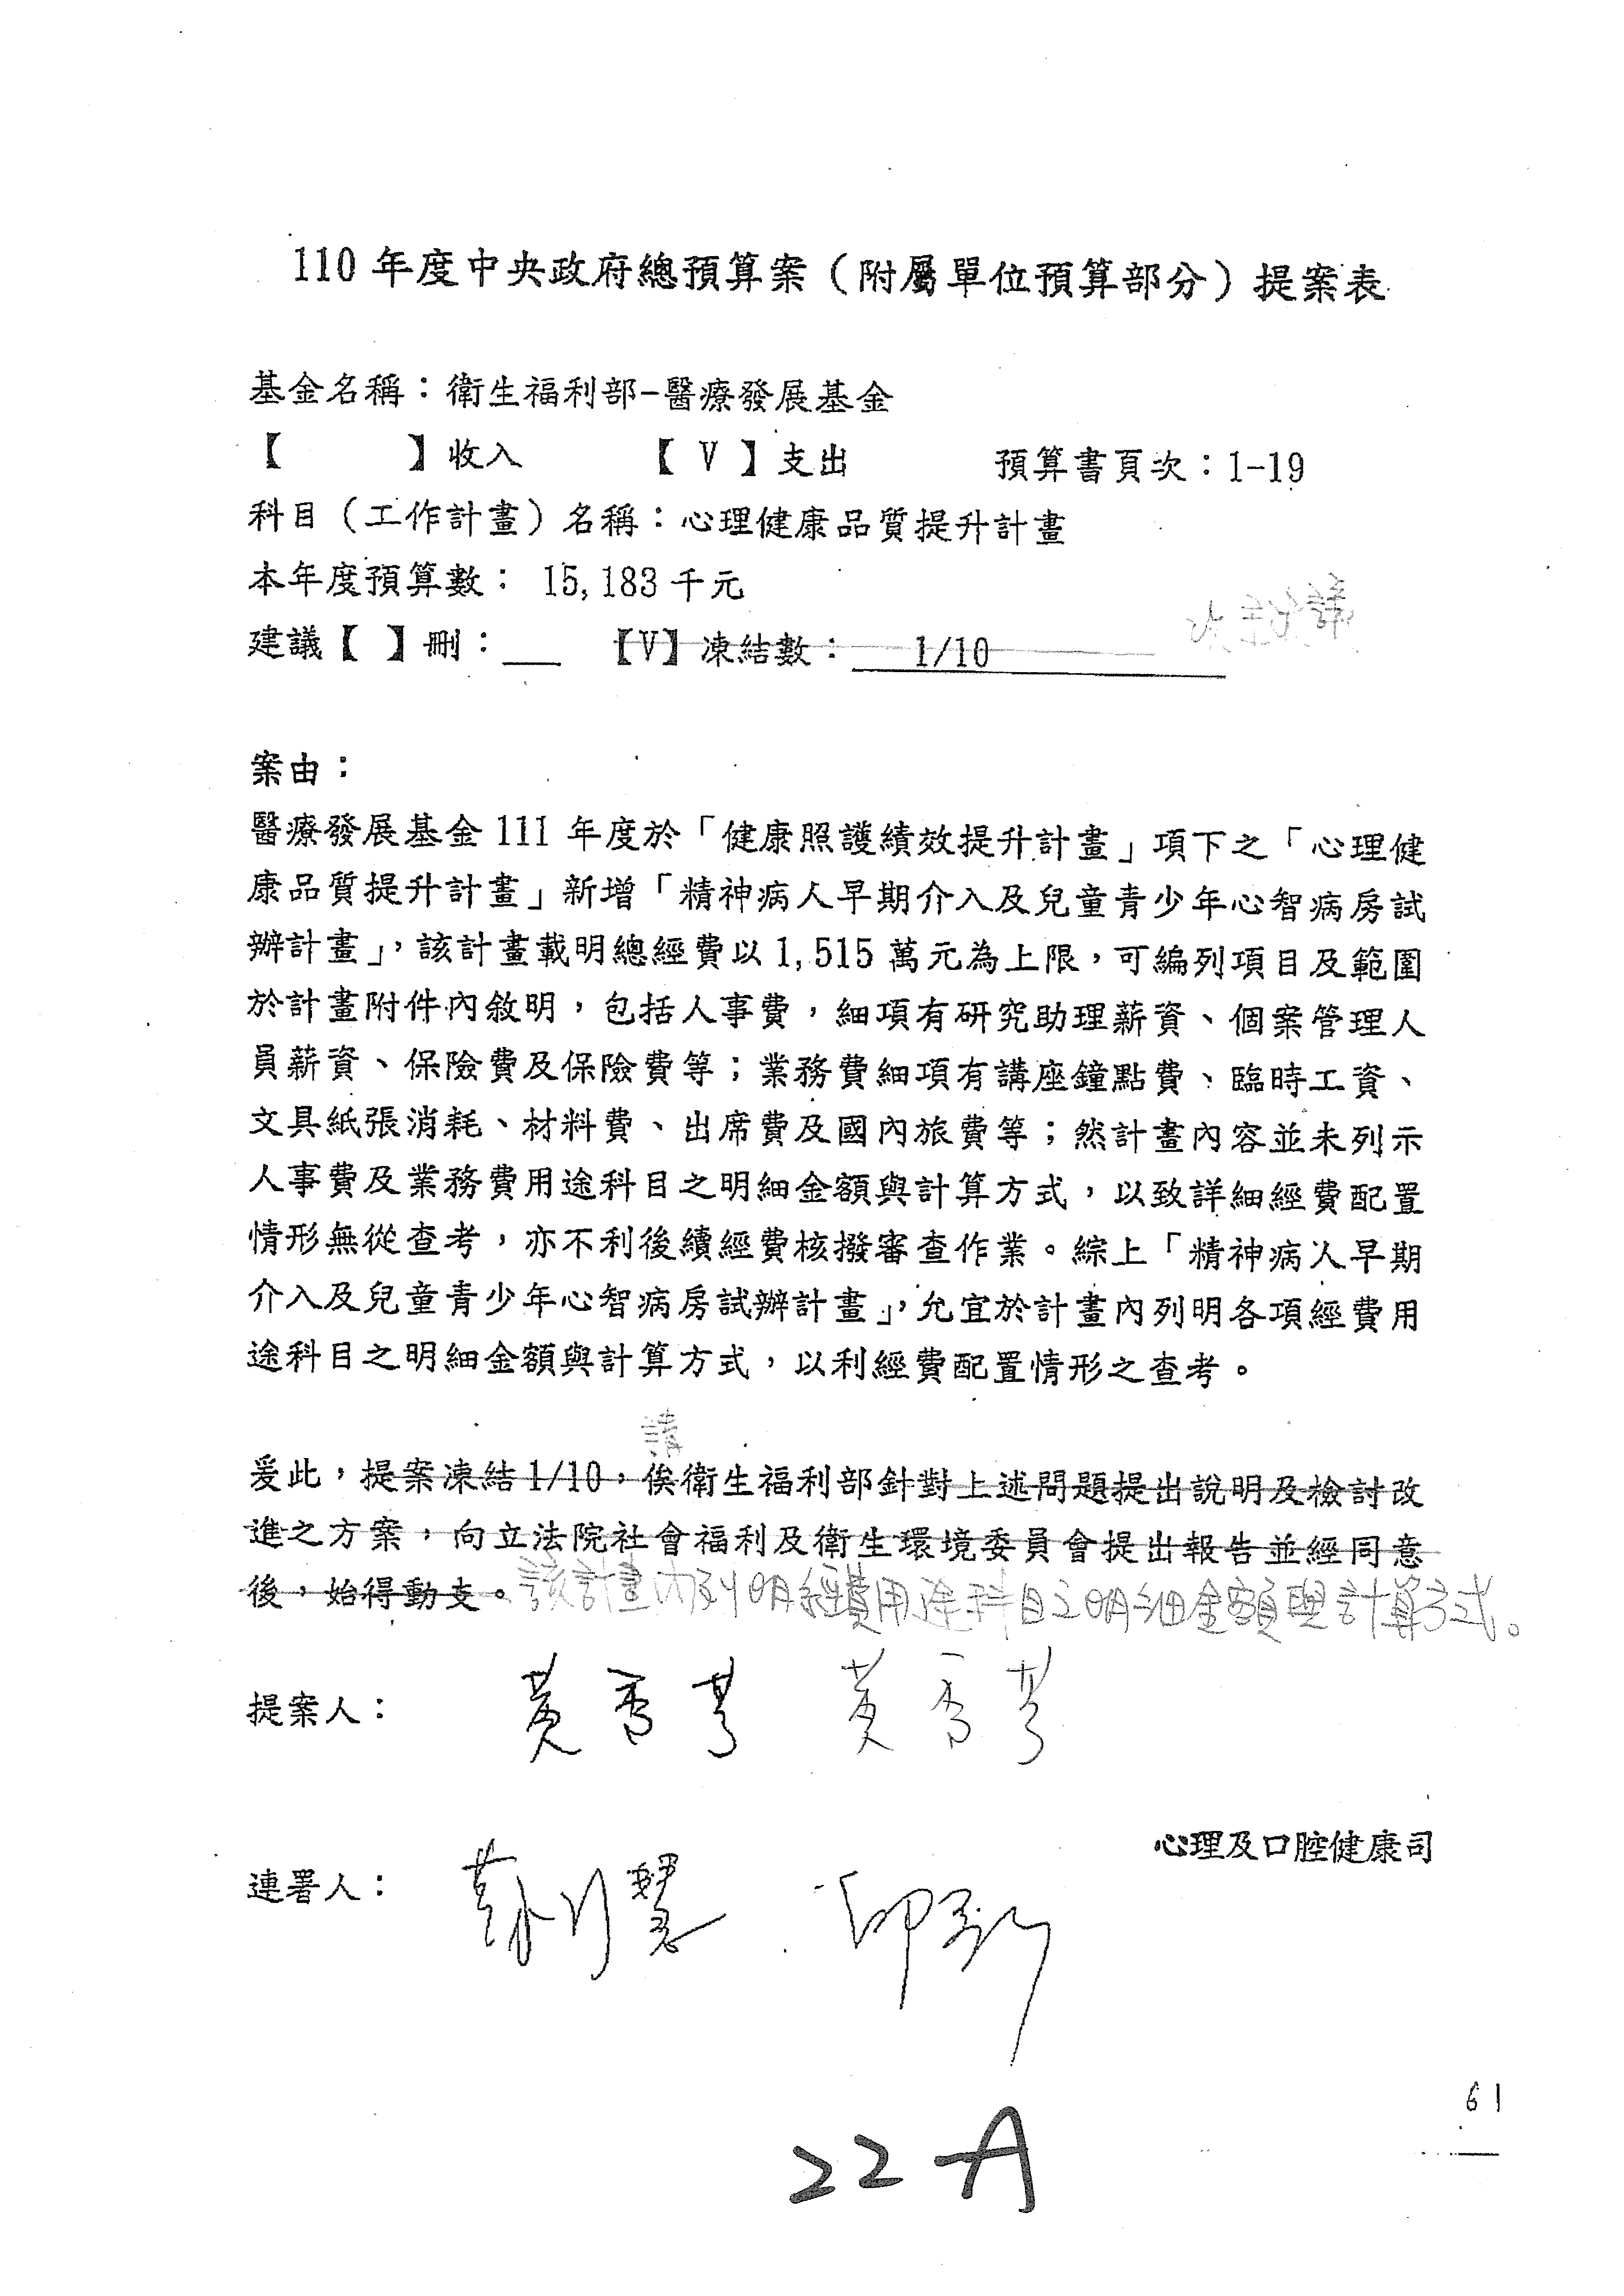 110 年度中央政府總預算案（附屬單位預算部分）提案表
基金名稱：衛生福利部-醫療發展基金
【 】收入 【 V 】支出 預算書頁次：1-19
科目（工作計畫）名稱：心理健康品質提升計畫
本年度預算數： 15,183 千元
建議【 】刪：___ 【V】凍結數： 1/10
案由：
醫療發展基金 111 年度於「健康照護績效提升計畫」項下之「心理健
康品質提升計畫」新增「精神病人早期介入及兒童青少年心智病房試
辦計畫」，該計畫載明總經費以 1,515 萬元為上限，可編列項目及範圍
於計畫附件內敘明，包括人事費，細項有研究助理薪資、個案管理人
員薪資、保險費及保險費等；業務費細項有講座鐘點費、臨時工資、
文具紙張消耗、材料費、出席費及國內旅費等；然計畫內容並未列示
人事費及業務費用途科目之明細金額與計算方式，以致詳細經費配置
情形無從查考，亦不利後續經費核撥審查作業。綜上「精神病人早期
介入及兒童青少年心智病房試辦計畫」，允宜於計畫內列明各項經費用
途科目之明細金額與計算方式，以利經費配置情形之查考。
請
爰此，提案凍結 1/10，俟衛生福利部針對上述問題提出說明及檢討改
進之方案，向立法院社會福利及衛生環境委員會提出報告並經同意
後，始得動支。該計畫內列明經費用途科目之明細金額與計算方式。
提案人： 黃秀芳 黃秀芳
心理及口腔健康司
連署人：
61
22-A